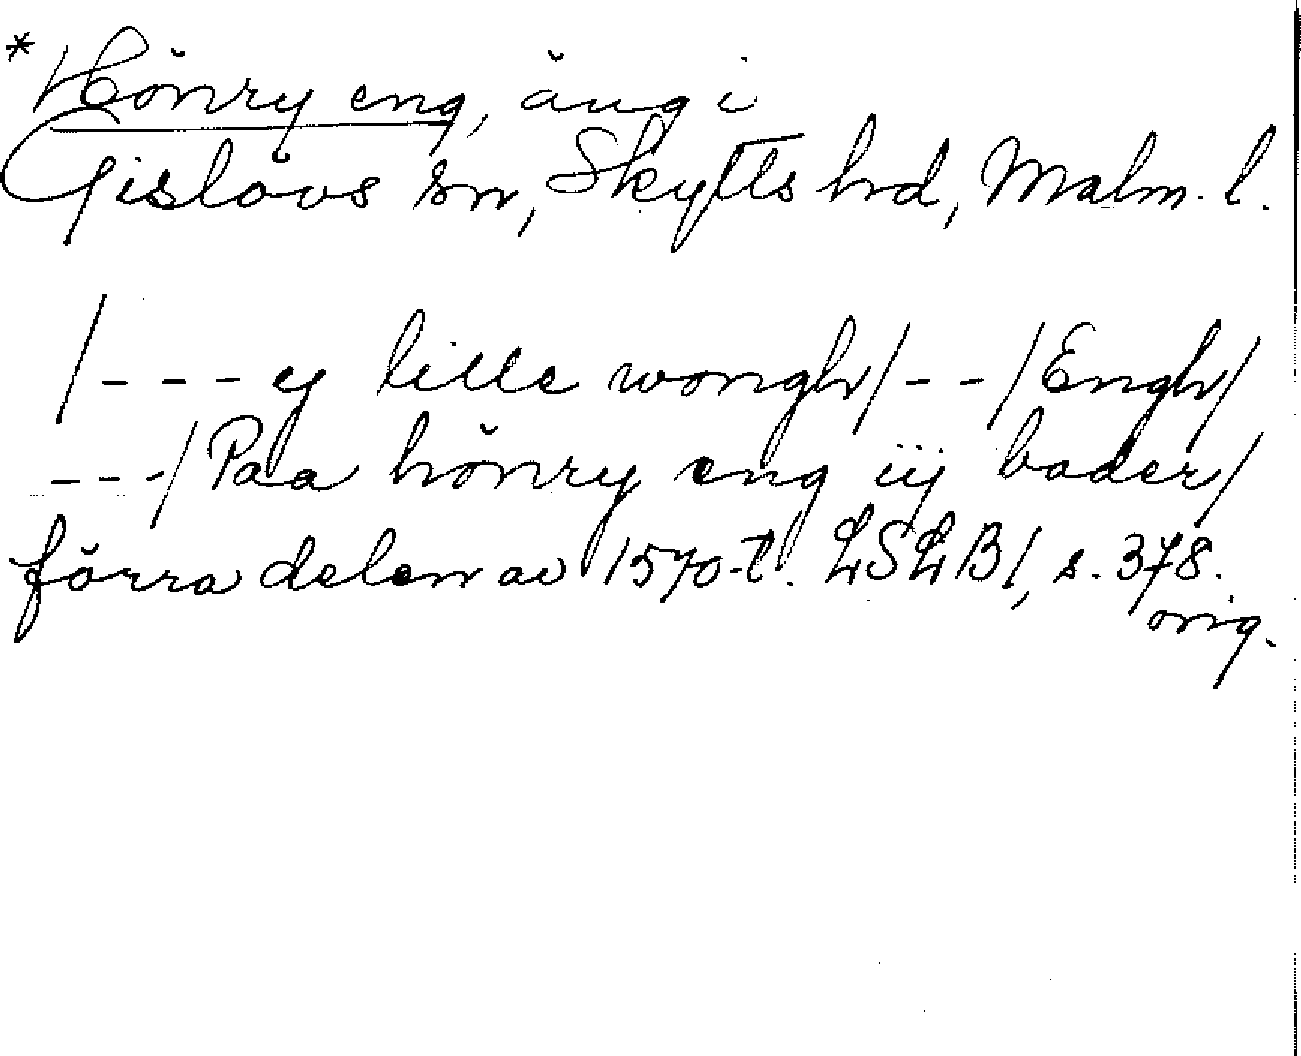 *Hönry eng, äng i
Gislövs sn, Skytts hd, Malm. l.
/---y lille wongh/--/Engh/
---/Paa hönry eng iij bader/
förra delen av 1570-t. LSLB1, s. 378.
orig.